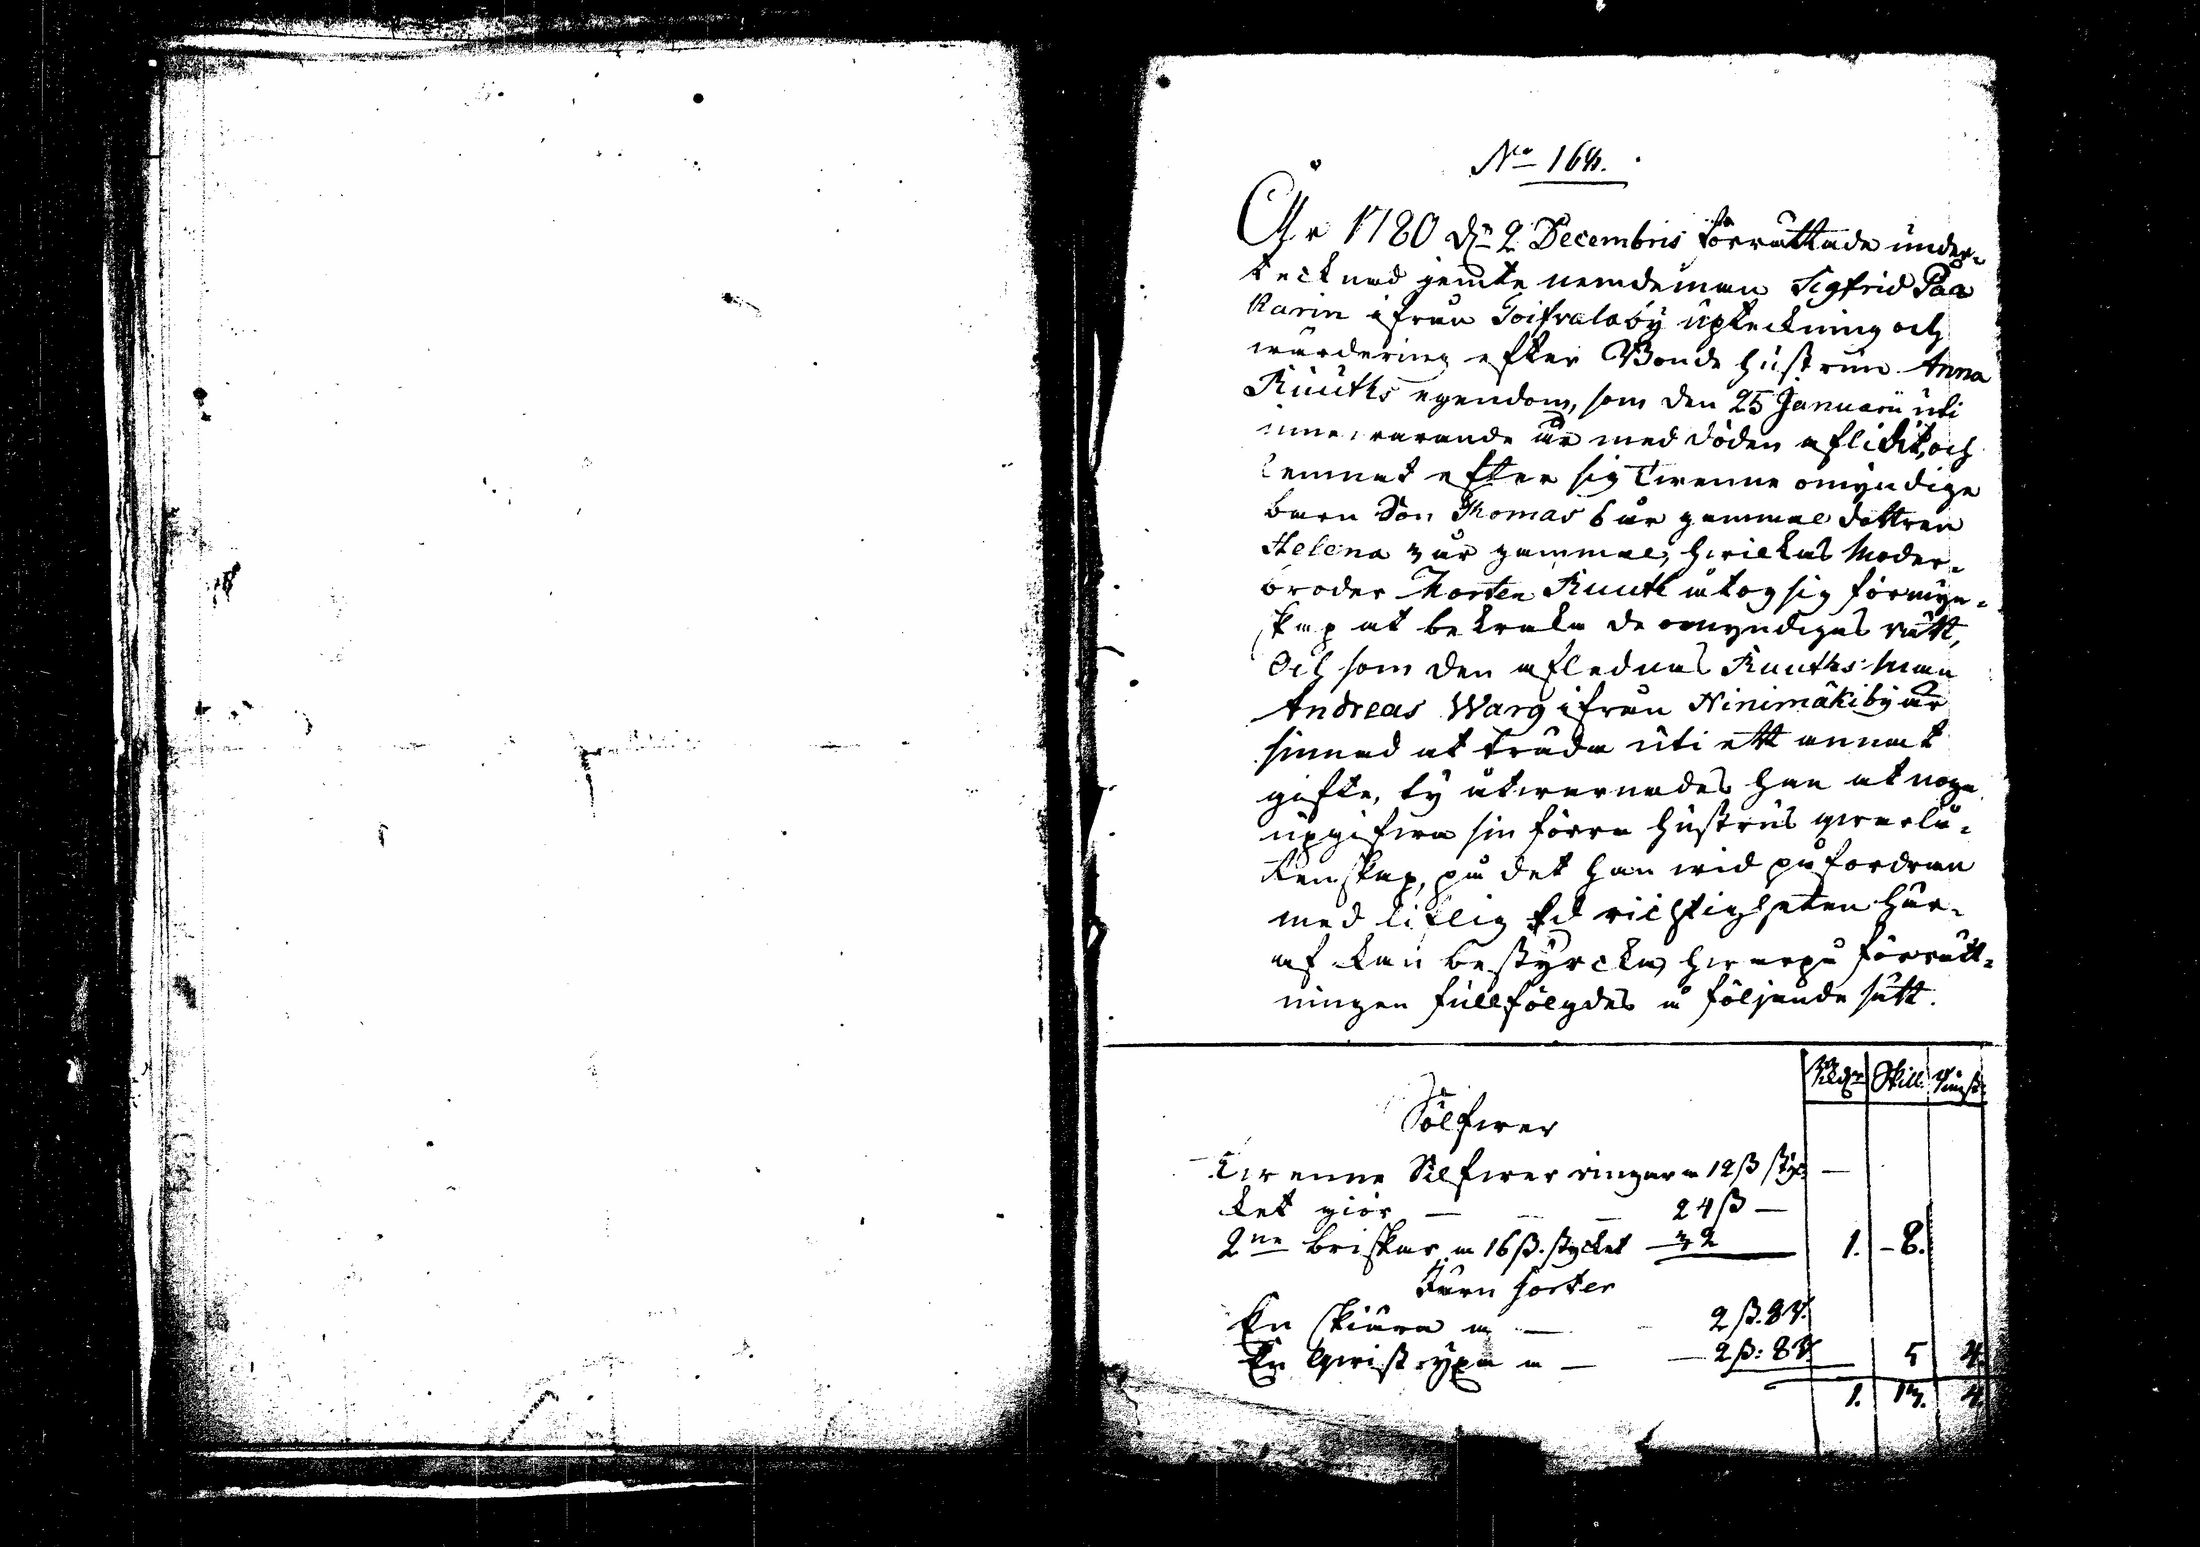 No 164.
År 1780 dn 2 Decembris förrättade under-
tecknad jemte nemdeman Sigfrid Paa
Karin ifrån Goifvalaby upteckning och
wärdering efter Bonde hustrun Anna
Ruuths egendom, som den 25 Januarii uti
innewarande år med döden aflidit, och
lemnat efter sig Twenne omyndige
barn Son Thomas 6 år gammal dottren
Helena 3 år gammal, hwilkas Moder-
broder Morten Ruuth åtog sig förmyn-
skap at bekraka de omyndigas rätt,
Och som den aflednas Ruuths Man
Andreas Warg ifrån Ninimäki by är
sinnad at träda uti ett annat
gifte, ty åtwarnades han at noga
upgifwa sin förra hustrus qwarlå-
tenskap, på det han wid påfordran
med liflig Ed richtigheten här-
af kan bestyrcka, hwarpå förrätt-
ningen fullfölgdes å följande sätt.
Rikdr Skill. Rungst.
Sölfwer
Twenne Silfwer ringar a 12 ß styc-
ket giör — 24 ß —
2ne briskar a 16 ß. stycket — 32 1. – 8.
Järn sorter
En skiära a — 2 ß. 8 r.
En Qwist yxa a — 2 ß: 8 r. 5 4.
1. 13. 4.